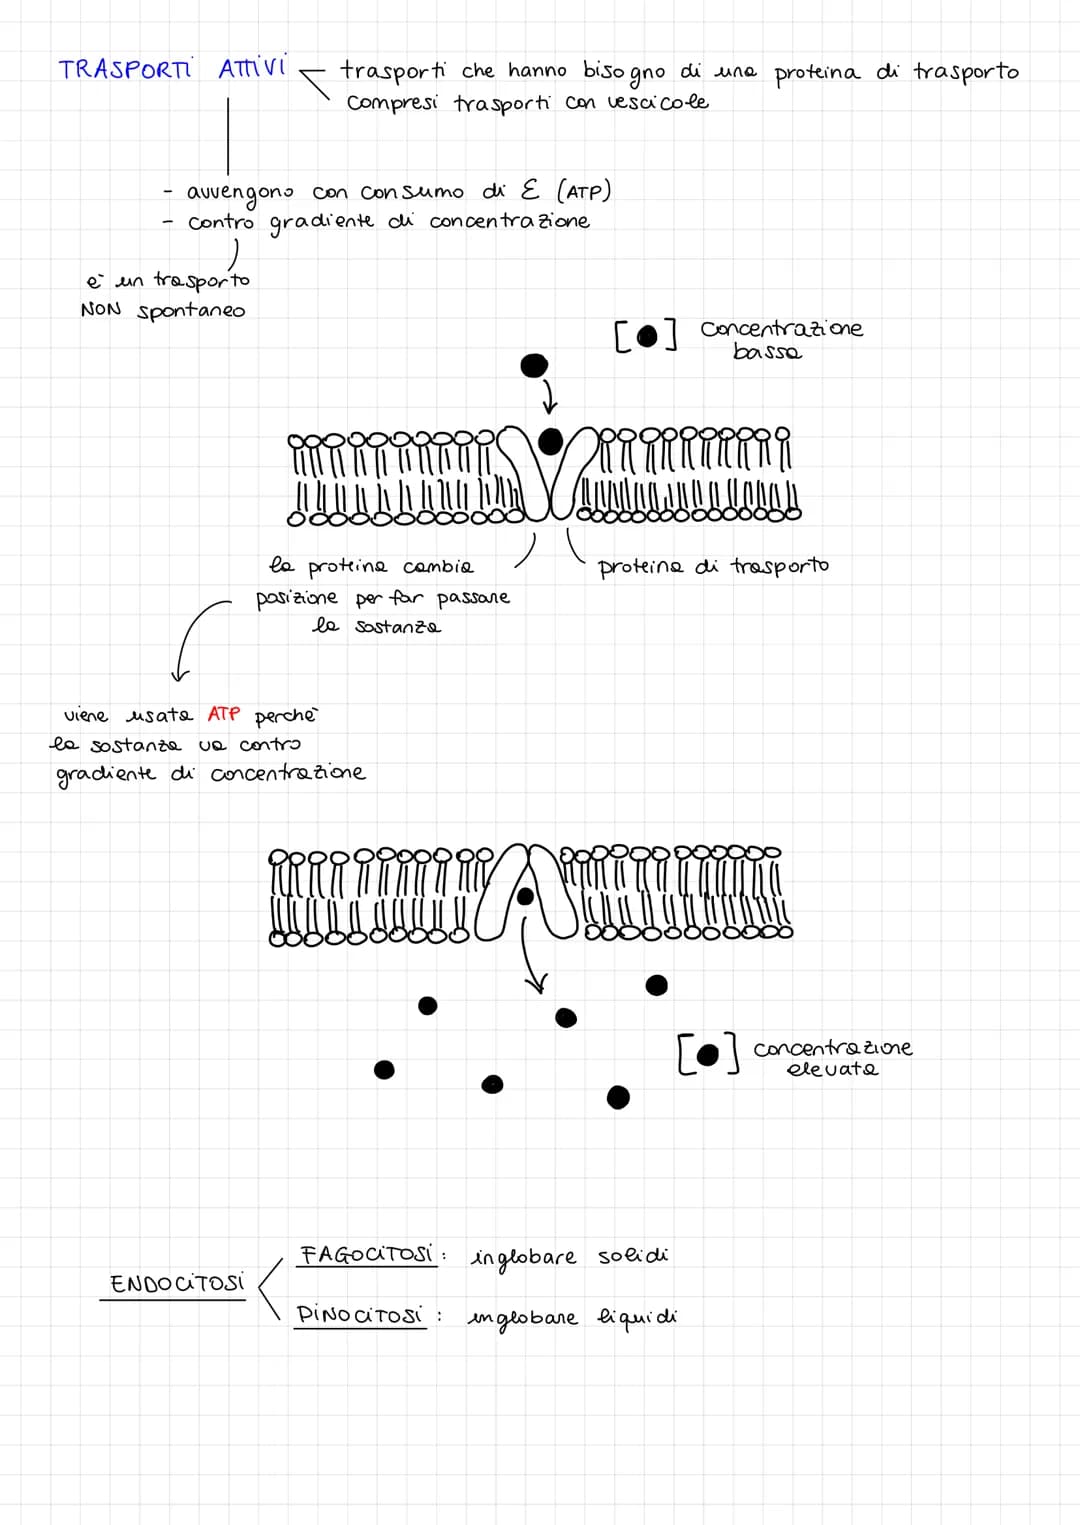 TRASPORTI ATTIVI
trasporti che hanno bisogno di una proteina di trasporto
compresi trasporti con vescicole
- avvengono con consumo di E (ATP)
- contro gradiente di concentrazione
è un trasporto
NON spontaneo
[●] concentrazione
bassa
la proteina cambia
posizione per far passare
la sostanza
proteina di trasporto
viene usata ATP perchè
la sostanza va contro
gradiente di concentrazione
[●] concentrazione
elevata
ENDOCITOSI
FAGOCITOSI: inglobare solidi
PINOCITOSI: inglobare liquidi